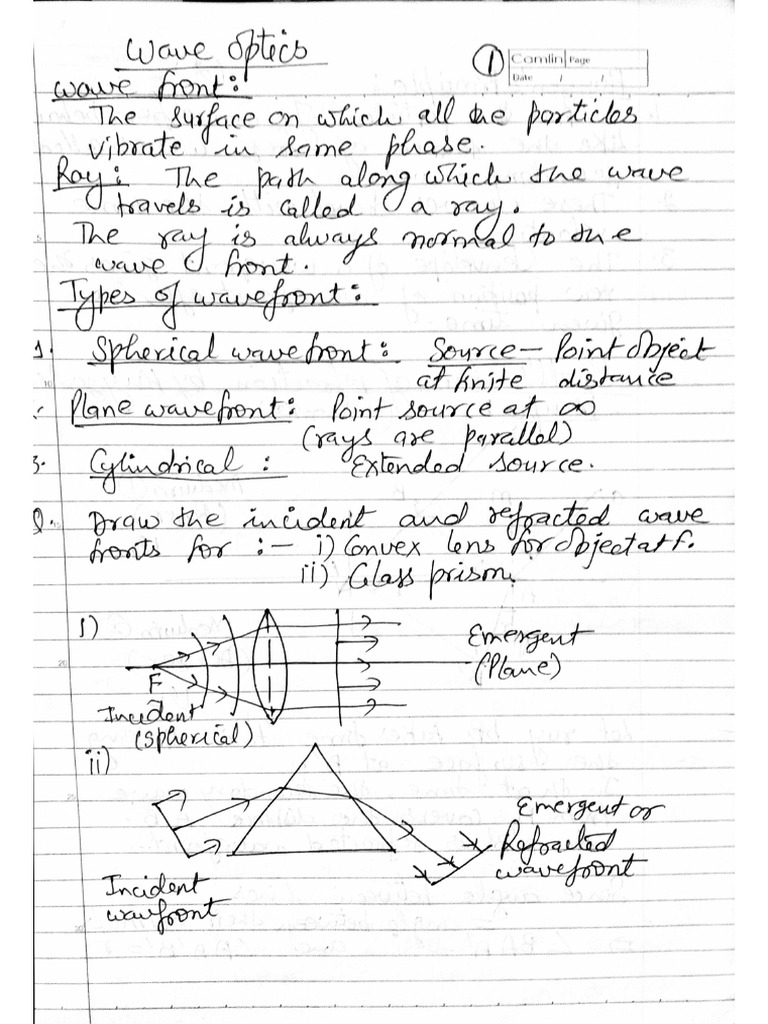 Wave Optics
1 Camlin Page
Date / /
Wave front:
The surface on which all the particles
vibrate in same phase.
Ray: The path along which the wave
travels is called a ray.
The ray is always normal to the
wave front.
Types of wavefront:
1. Spherical wavefront: Source – Point object
at finite distance
Plane wavefront: Point source at ∞
(rays are parallel)
3. Cylindrical: Extended source.
Q. Draw the incident and refracted wave
fronts for :– i) Convex lens for object at f.
ii) Glass prism.
i)
Emergent
(Plane)
F
Incident
(Spherical)
ii)
Emergent or
Refracted
wavefront
Incident
wavfront